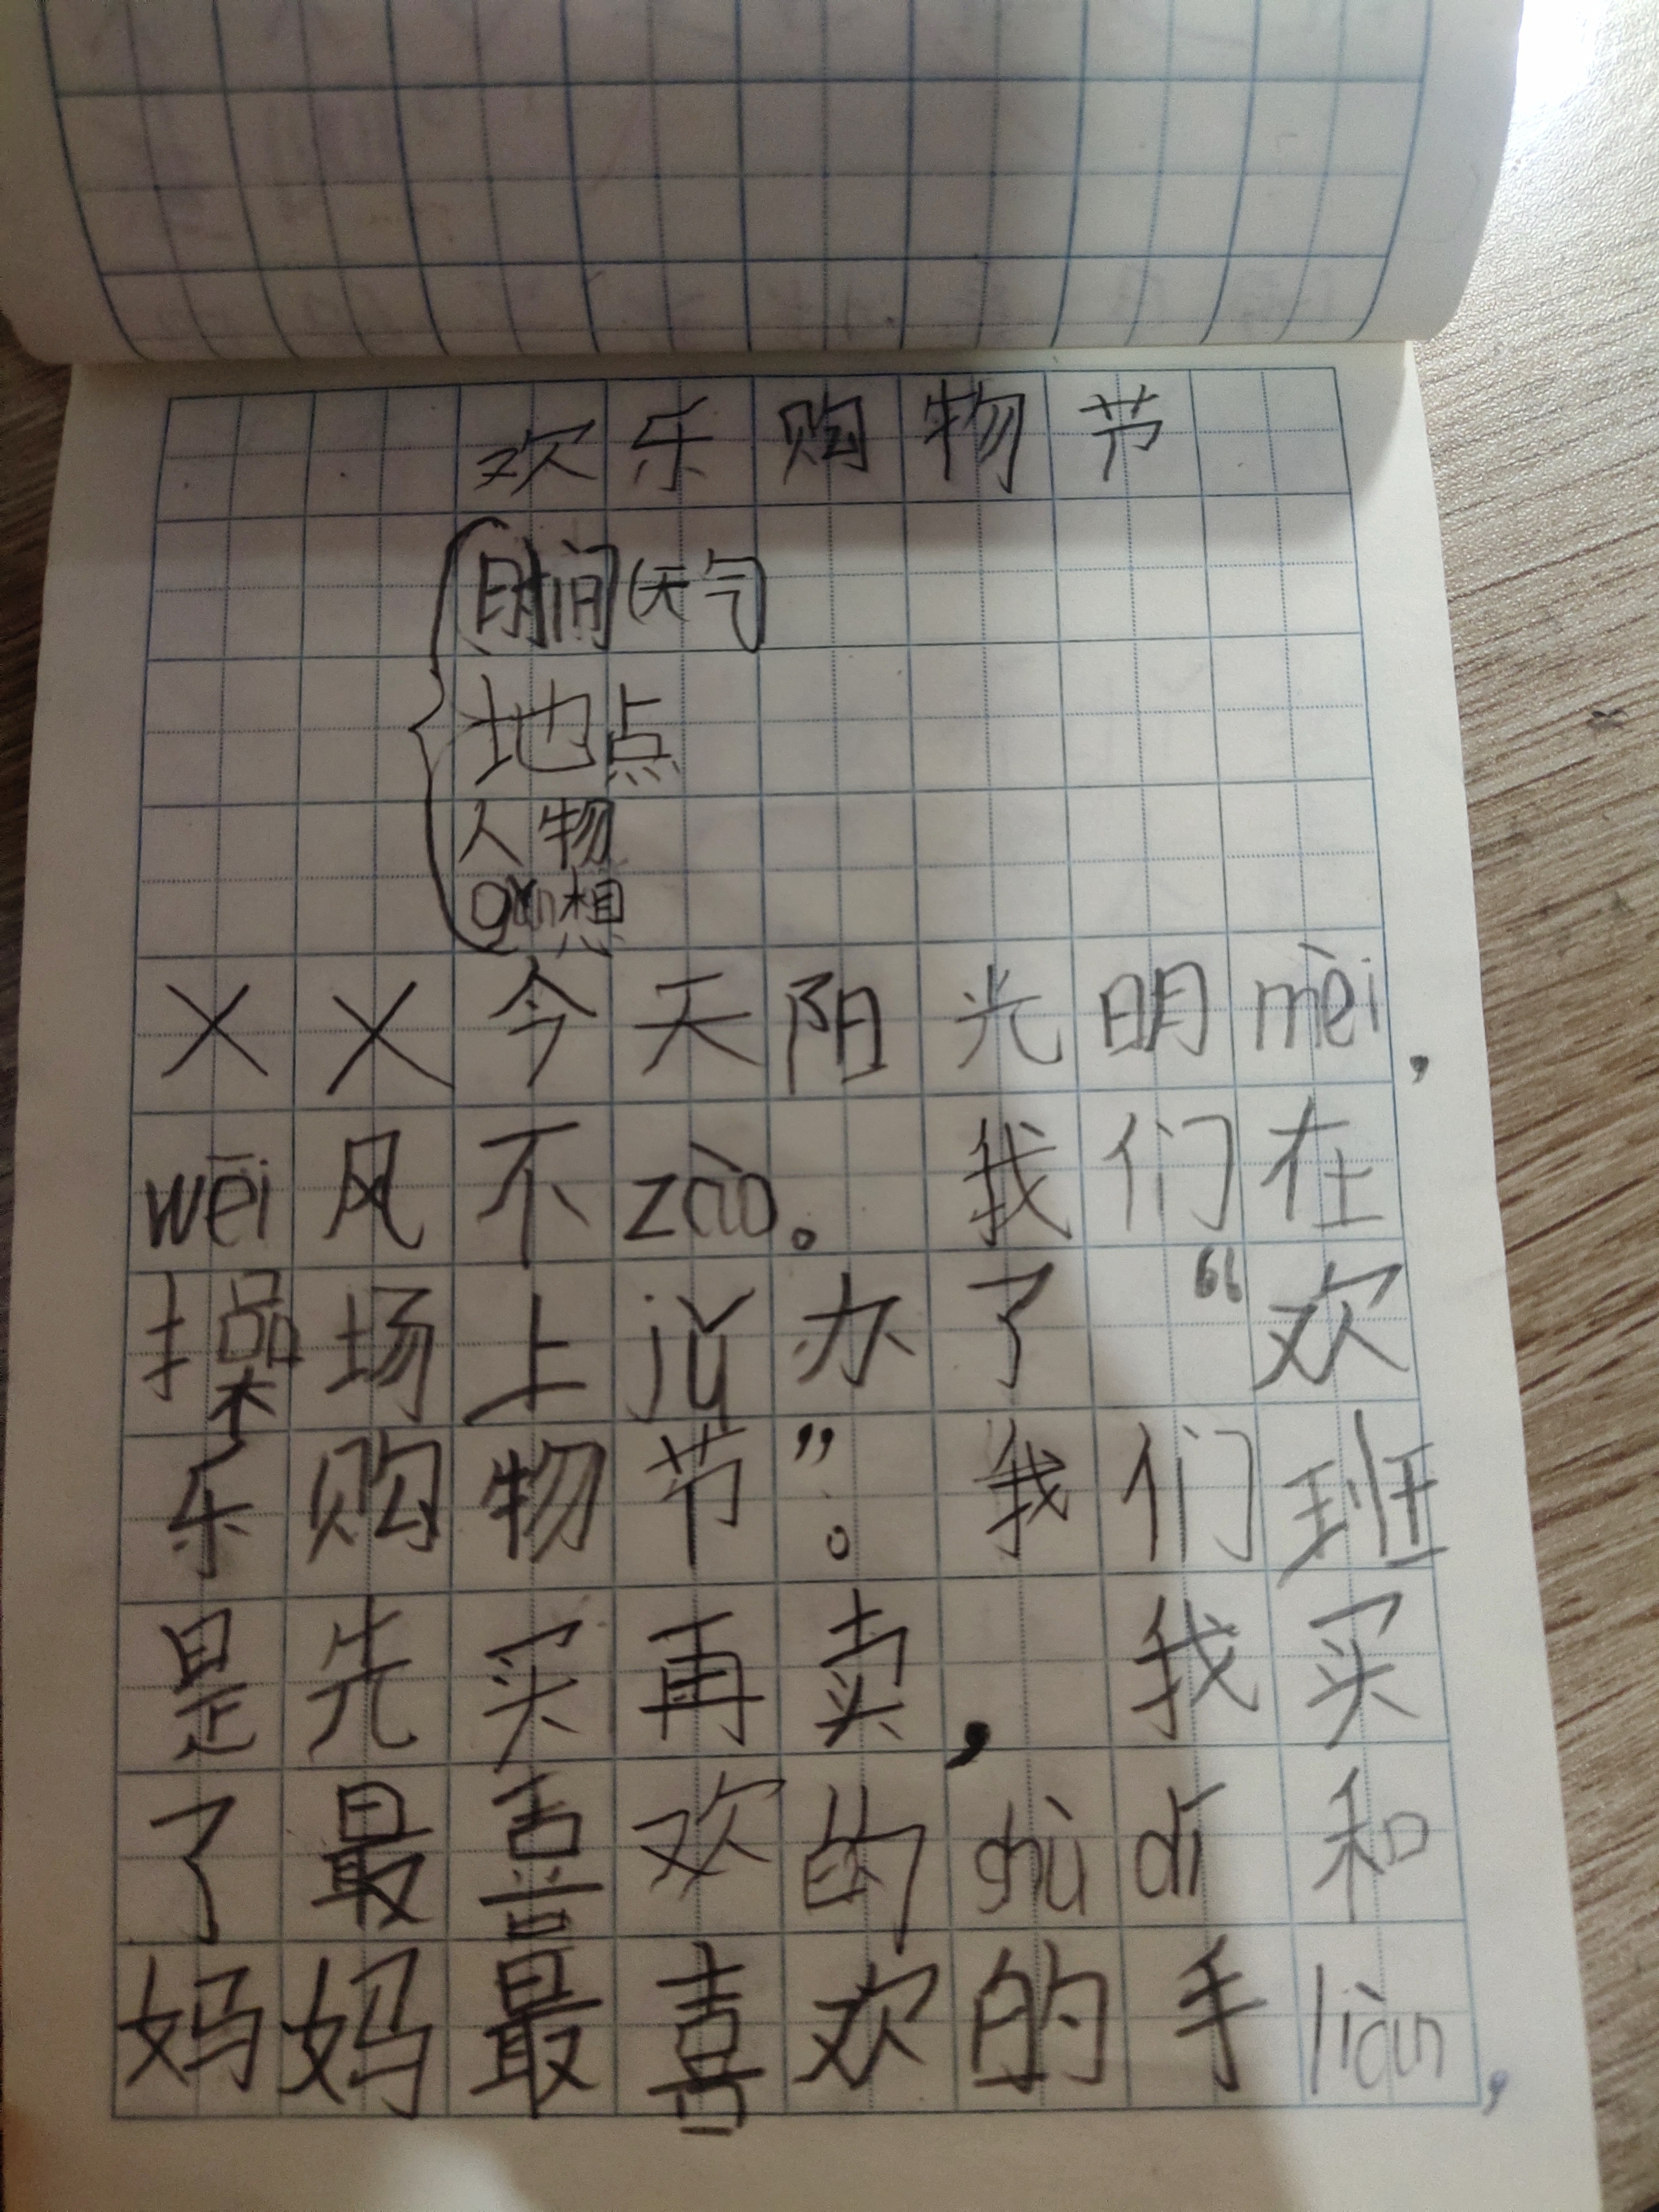 欢乐购物节
时间(天气)
地点
人物
gǎn想
××今天阳光明mèi,
wēi风不zào。我们在
操场上jǔ办了“欢
乐购物节”。我们班
是先买再卖,我买
了最喜欢的shù dǐ和
妈妈最喜欢的手liàn,